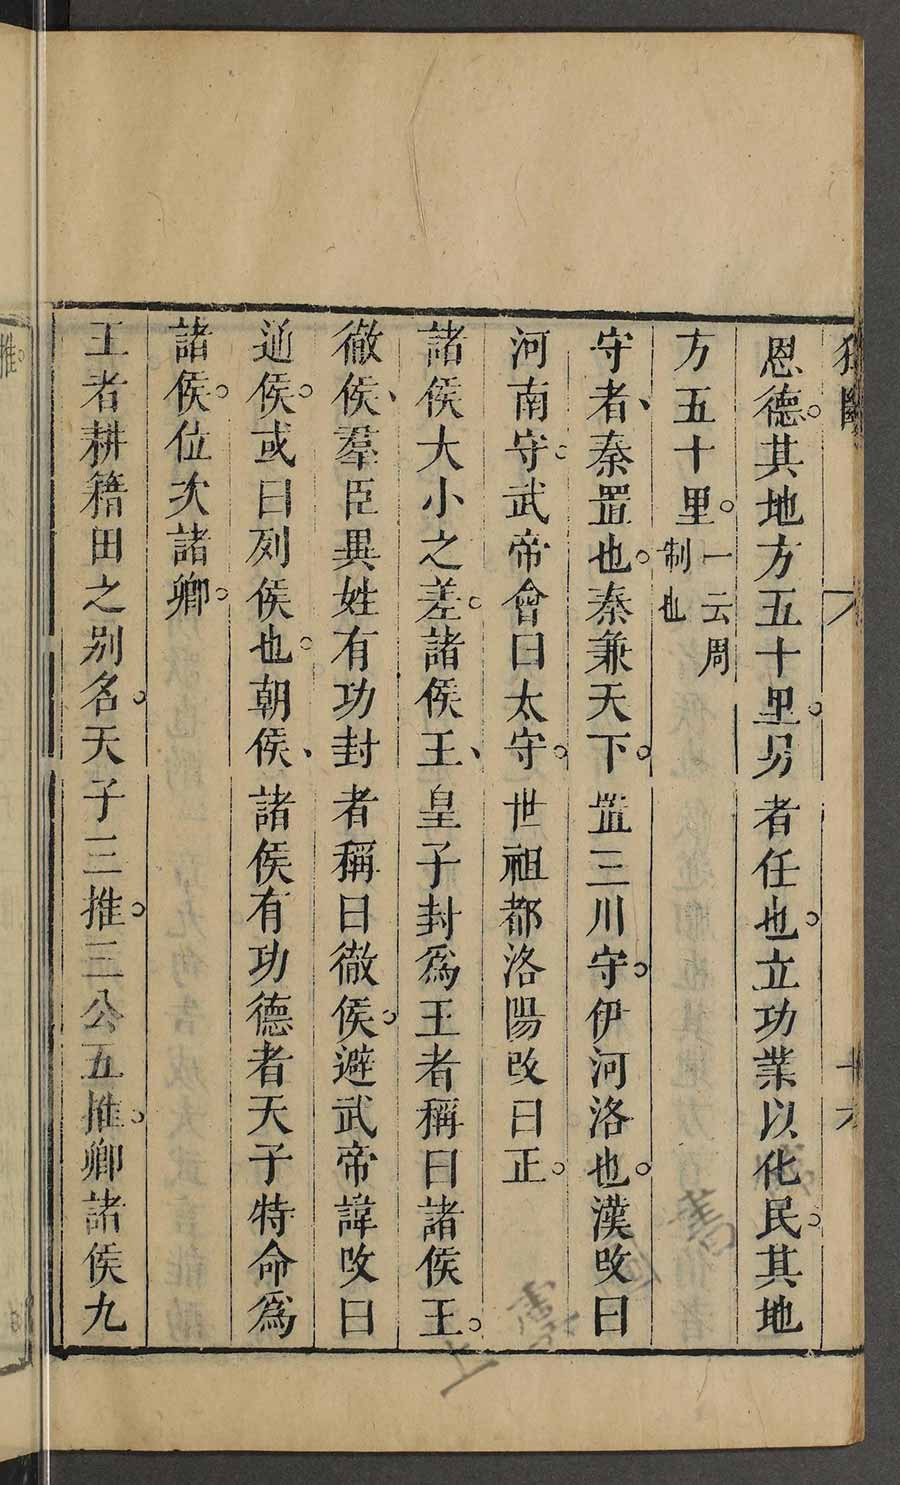 獨斷 十六
恩德。其地方五十里。男者任也。立功業以化民。其地
方五十里。一云周制也
守者、秦置也。秦兼天下。置三川守。伊河洛也。漢改曰
河南守。武帝會曰太守。世祖都洛陽改曰正。
諸侯大小之差。諸侯王、皇子封爲王者稱曰諸侯王。
徹侯、羣臣異姓有功封者稱曰徹侯。避武帝諱改曰
通侯。或曰列侯也。朝侯、諸侯有功德者天子特命爲
諸侯。位次諸卿。
王者耕籍田之别名。天子三推。三公五推。卿諸侯九
推。